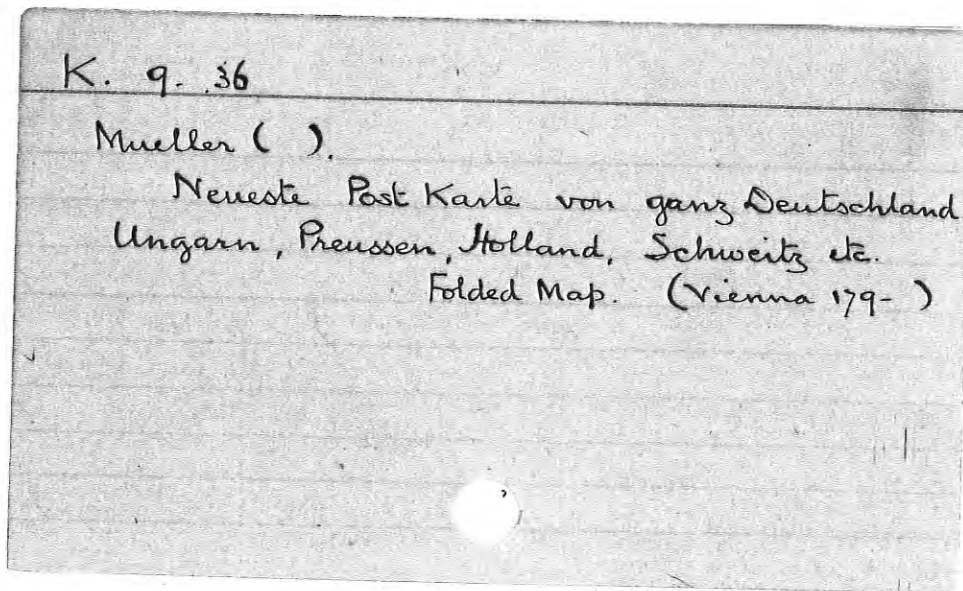 K. 9. 36
Mueller ( ).
Neueste Post Karte von ganz Deutschland
Ungarn, Preussen, Holland, Schweitz etc.
Folded Map. (Vienna 179- )